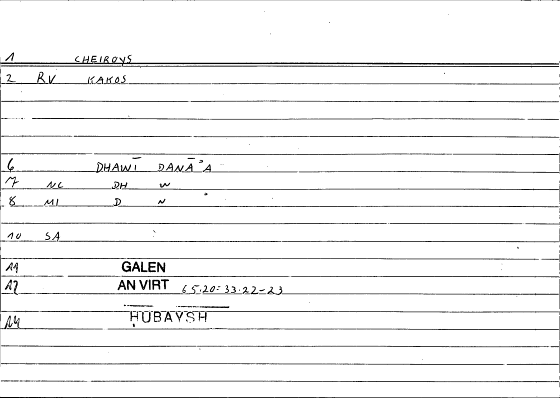 1 CHEIROYS
2 RV KAKOS
6 DHAWĪ DANĀ°A
7 NC DH W
8 MI D N
10 SA
11 GALEN
12 AN VIRT 65.20=33.22-23
14 HUBAYSH